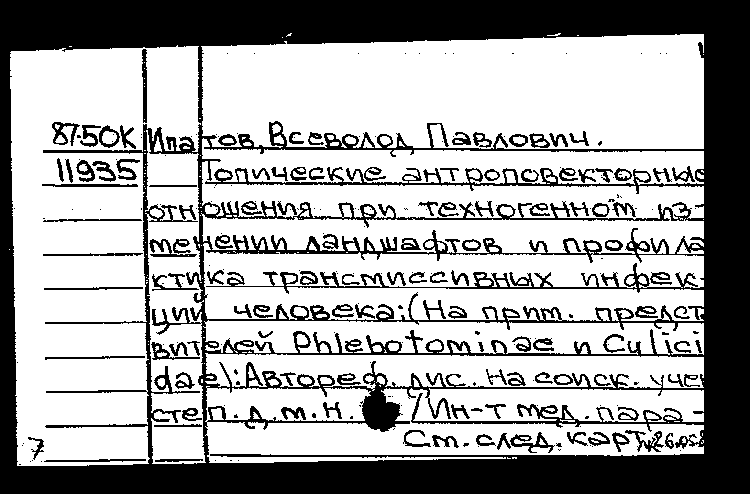 87-50К Ипатов, Всеволод Павлович.
11935 Топические антроповекторные
отношения при техногенном из-
менении ландшафтов и профила
ктика трансмиссивных инфек-
ций человека:(На прим. предст
вителей Phlebotominae и Culici
dae):Автореф. дис. на соиск. учен
степ. д.м.н. /Ин-т мед. пара-
См. след. карт.
7